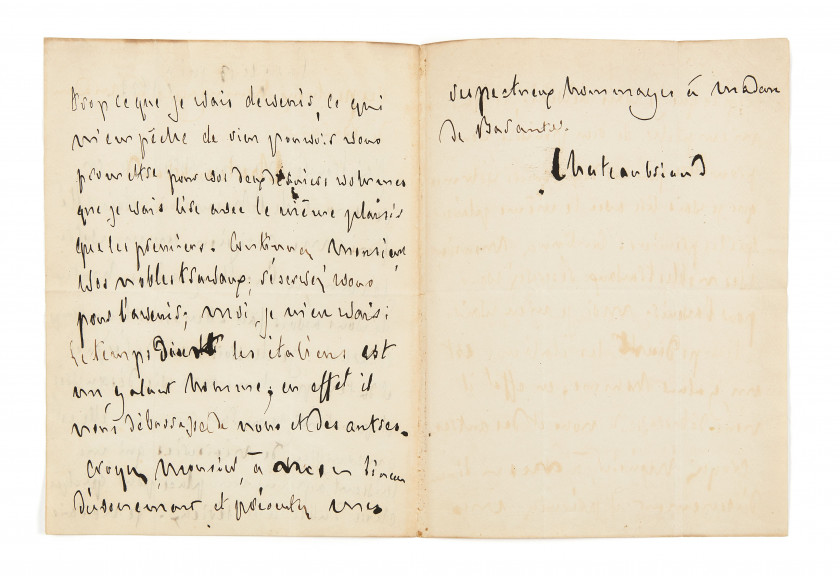 trop ce que je vais devenir, ce qui
m'empêche de vous pouvoir vous
pour vos deux derniers volumes
que je vais lire avec le même plaisir
que les premiers. Continuez Monsieur,
vos nobles travaux; réservez vous
pour l'avenir; moi, je m'en vais:
le temps disent les italiens est
un galant homme; en effet il
nous débarrasse de nous et des autres.
Croyez, Monsieur, à mon sincère
dévouement et présentez mes
respectueux hommages à madame
de Barante.
Chateaubriand